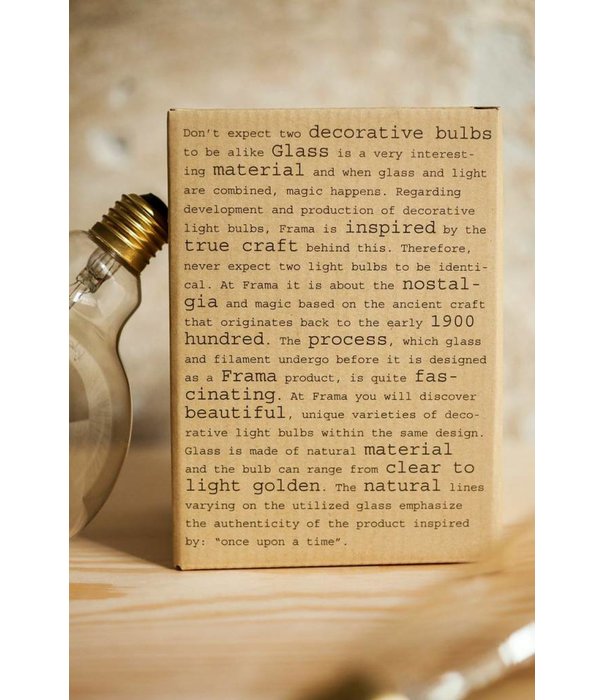 Don't expect two decorative bulbs
to be alike Glass is a very interest-
ing material and when glass and light
are combined, magic happens. Regarding
development and production of decorative
light bulbs, Frama is inspired by the
true craft behind this. Therefore,
never expect two light bulbs to be identi-
cal. At Frama it is about the nostal-
gia and magic based on the ancient craft
that originates back to the early 1900
hundred. The process, which glass
and filament undergo before it is designed
as a Frama product, is quite fas-
cinating. At Frama you will discover
beautiful, unique varieties of deco-
rative light bulbs within the same design.
Glass is made of natural material
and the bulb can range from clear to
light golden. The natural lines
varying on the utilized glass emphasize
the authenticity of the product inspired
by: “once upon a time”.